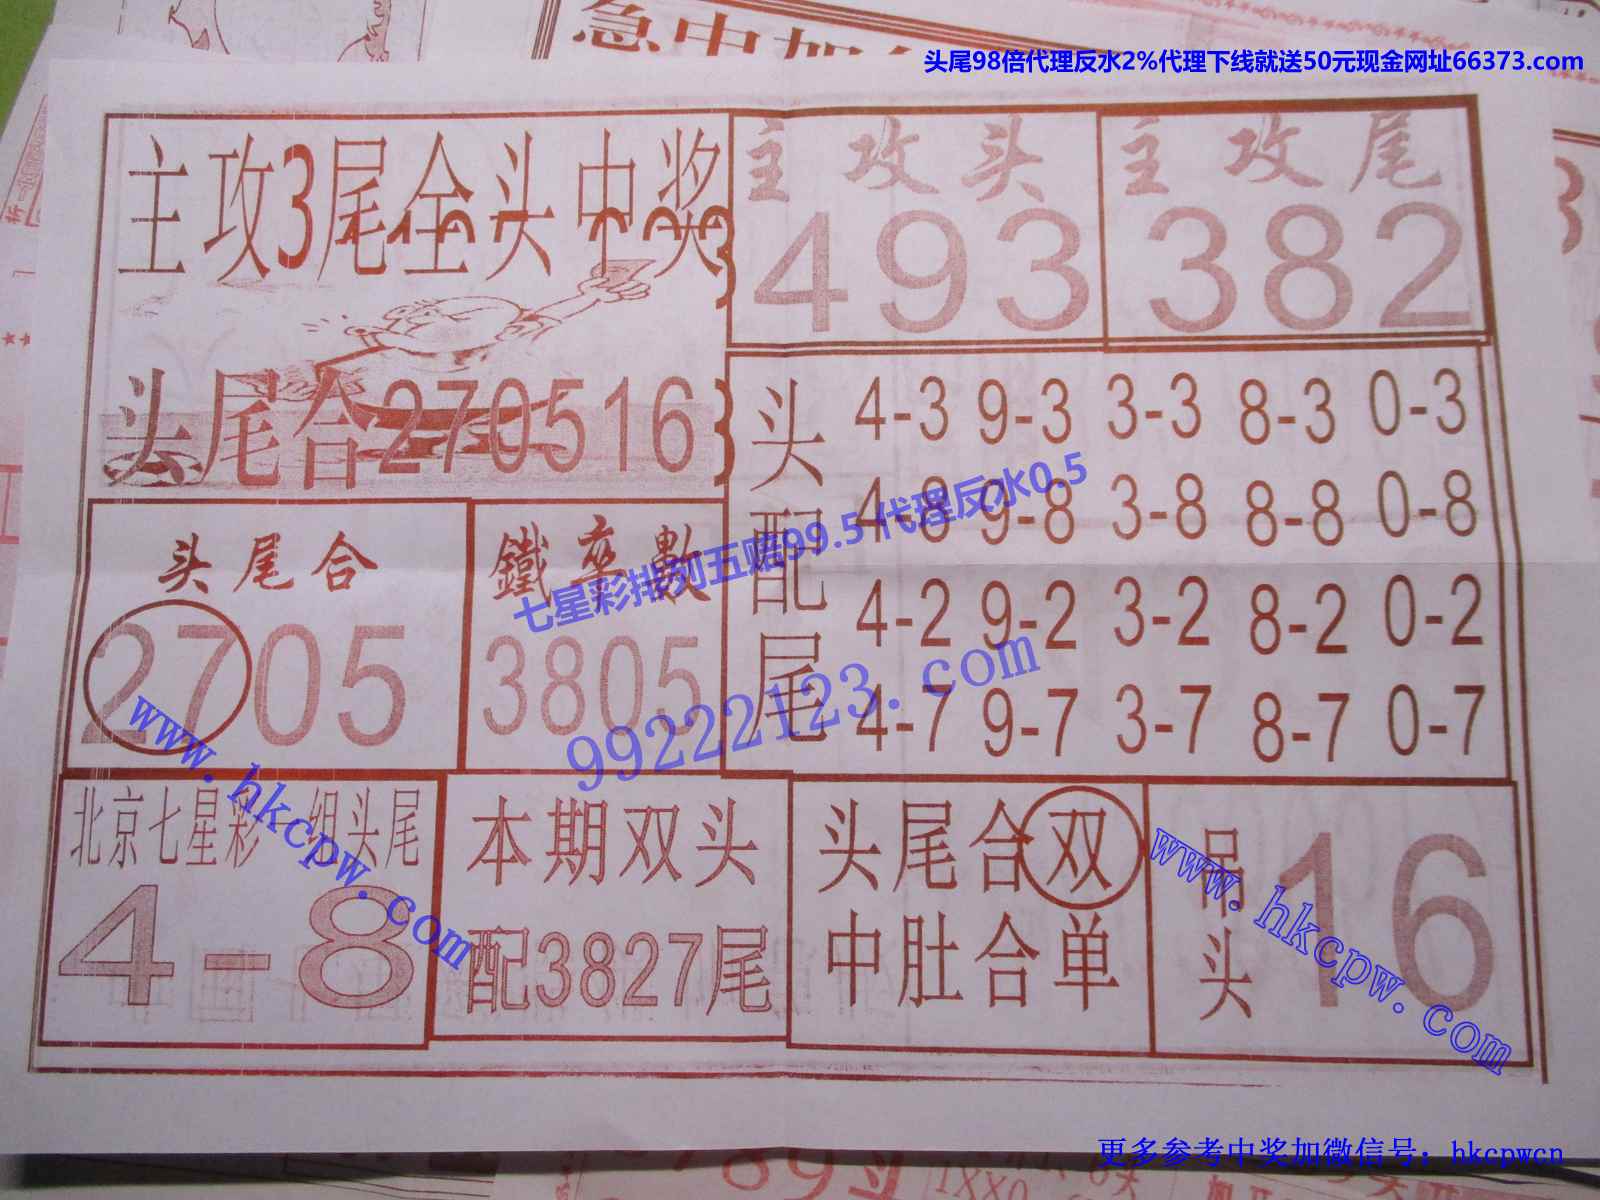 急中加
头尾98倍代理反水2%代理下线就送50元现金网址66373.com
主攻3尾全头中奖
主攻头
493
主攻尾
382
头尾合270516
头配尾
4-3 9-3 3-3 8-3 0-3
4-8 9-8 3-8 8-8 0-8
4-2 9-2 3-2 8-2 0-2
4-7 9-7 3-7 8-7 0-7
头尾合
2705
鐵座數
3805
七星彩排列五赔99.5代理反水0.5
99222123.com
www.hkcpw.com
北京七星彩一组头尾
4-8
本期双头
配3827尾
头尾合双
中肚合单
吊头
16
www.hkcpw.com
更多参考中奖加微信号：hkcpwcn
789头
1XX0